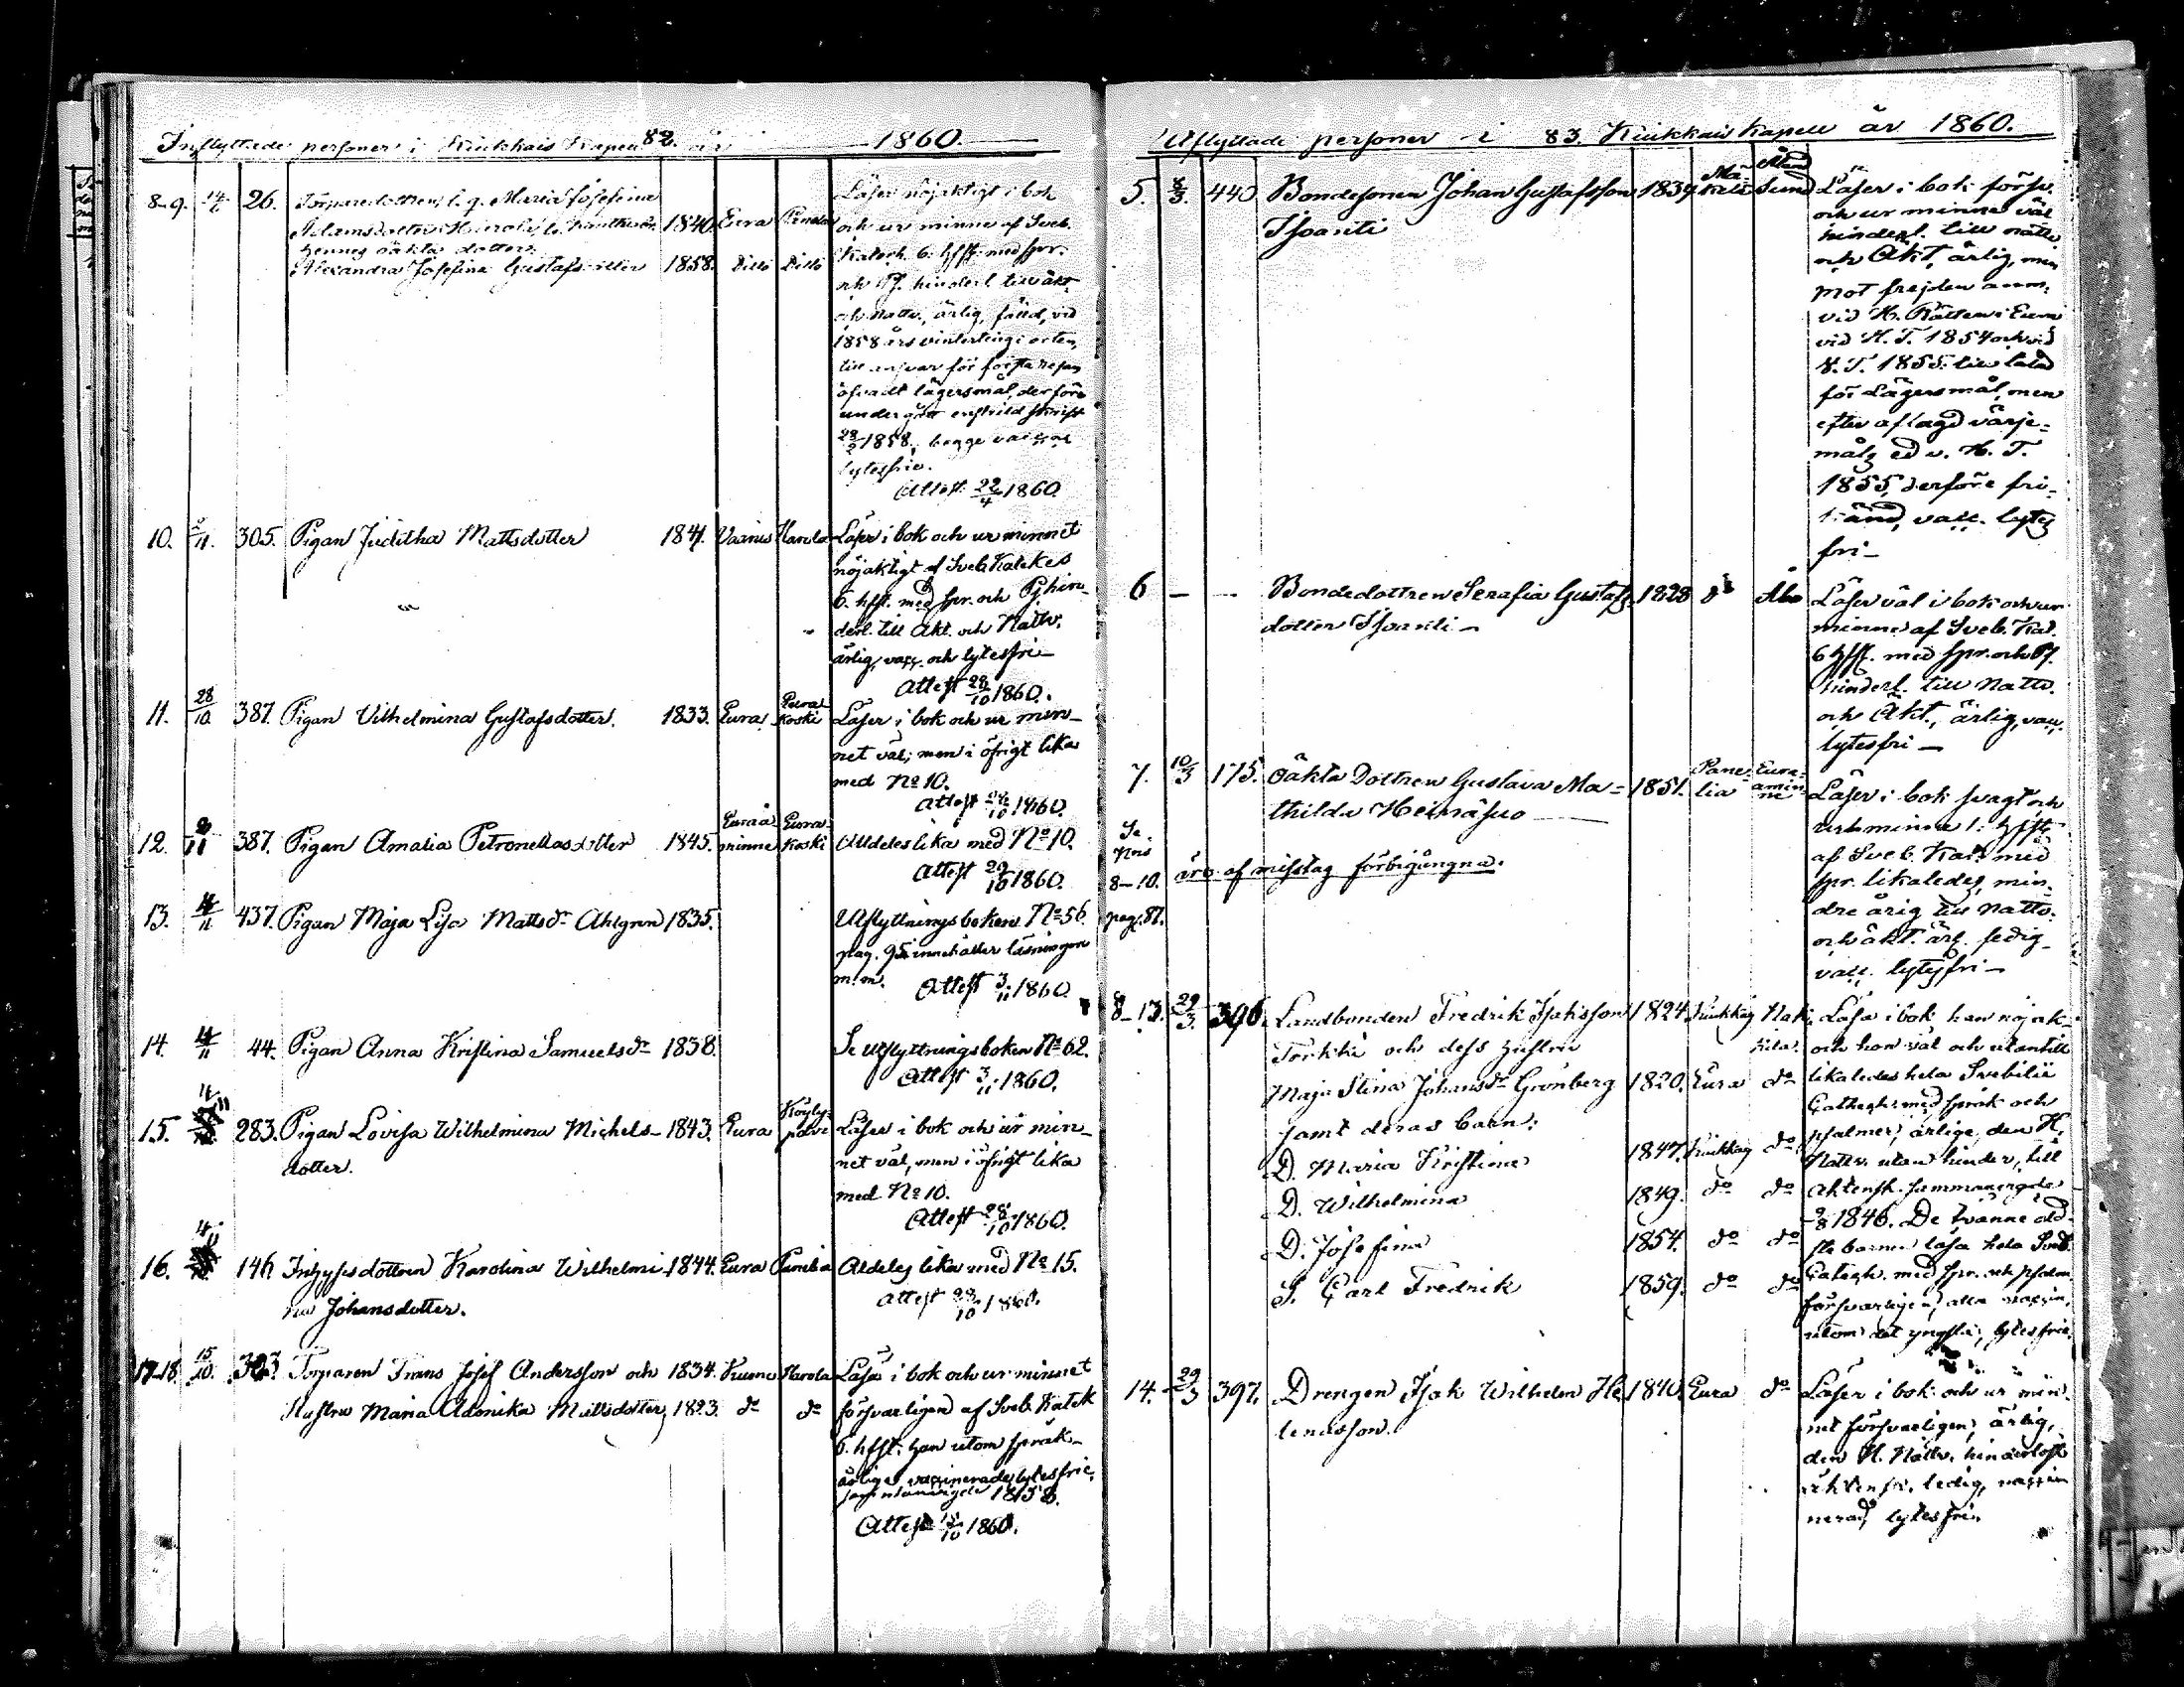 Inflyttade personer i Kiukkais Kapell 82. år 1860.
8-9. 26. Torparedottren, l. q. Maria Josefina
Adamsdotter 1840. Eura
hennes oäkta dotter,
Alexandra Josefina Gustafsdotter 1858. Ditto Ditto
Läser nöjaktigt i bok
och ur minne af Sveb.
Katech. 6. hfst. med spr.
och Ps. hinderl. till äkt.
och nattv., ärlig, fälld, vid
1858 års vinterting i orten,
till ansvar för första resan
öfvadt lägersmål, derföre
undergått enskild skrift
1858, begge vaccine
lytesfrie.
Attest 22/4 1860.
10. 305. Pigan Juditha Mattsdotter 1841. Vaanus Harola Läser i bok och ur minnet
nöjaktigt af Sveb. Katekes
6. hfst. med spr. och Ps. hin-
derl. till Äkt. och Nattv.
ärlig, vacc. och lytesfri—
Attest 28/10 1860.
11. 28/10 387. Pigan Vilhelmina Gustafsdotter. 1833. Eura Eura-
koski Läser i bok och ur min-
net väl; men i öfrigt lika
med No 10.
Attest 28/10 1860.
12. 387. Pigan Amalia Petronellasdotter 1845. Euraå
minne Eura-
koski Alldeles lika med No 10.
Attest 29/10 1860.
13. 4/11 437. Pigan Maja Lisa Mattsdr Ahlgren 1835. Utflyttningsboken No 56.
pag. 95 innehåller läsningen
m. m. Attest 3/11 1860.
14. 4/11 44. Pigan Anna Kristina Samuelsdr 1838. Se utflyttningsboken No 62.
Attest 3/11 1860.
15. 4/11 283. Pigan Lovisa Wilhelmina Michels- 1843. Eura Köyly-
polvi Läser i bok och ur min-
dotter. net väl, men i öfrigt lika
med No 10.
Attest 28/10 1860.
16. 4/11 146 Inhysesdottren Karolina Wilhelmi- 1844. Eura Panelia Aldeles lika med No 15.
na Johansdotter. Attest 28/10 1860.
17-18. 15/10. 303. Torparen Frans Josef Andersson och 1834. Harola Läsa i bok och ur minnet
Hustru Maria Adonika Mattsdotter, 1823. do do försvarligen af Sveb. Katek
6. hfst. han utom språk-
ärliga, vaccinerade, lytesfrie,
sammanvigde 1858.
Attest 15/10 1860.
Utflyttade personer i 83. Kiukkais Kapell år 1860.
5. 8/3. 440 Bondesonen Johan Gustafsson 1839 Åland
Sund
Isoantti
Läser i bok försv.
och ur minne väl
hinderl. till nattv.
och Äkt., ärlig, men
mot frejden anm.
vid H. Rätten i Eura
vid H. T. 1854 och vid
V. T. 1855 till talad
för Lägersmål, men
efter aflagd värje-
måls ed v. H. T.
1855, derföre fri-
känd, vacc. lytes
fri—
6 — — Bondedottren Serafia Gustafs- 1828 do Åbo
dotter Isoantti—
Läser väl i bok och ur
minne af Sveb. Kat.
6 hfst. med spr. och Ps.
hinderl. till nattv.
och Äkt., ärlig, vacc.
lytesfri—
7. 10/3 175. Oäkta Dottren Gustava Ma= 1851. Pane-
lia Eura-
åmin-
ne
thilda Heinäsuo
Läser i bok svagt och
ur minne 1. hfst.
af Sveb. Kat. med
spr. likaledes, min-
dre årig till nattv.
och äkt. ärl. ledig
vacc. lytesfri—
Se
No is
8–10. äro af misstag förbigångna.
pag. 87.
8–13. 29/3. 396. Landbonden Fredrik Isaksson 1824. Kiukkais Naki-
kila.
Torkki och dess hustru
Maja Stina Johansdr Grönberg 1820. Eura do
samt deras barn:
D. Maria Kristina 1847. Kiukkais do
D. Wilhelmina 1849. do do
D. Josefina 1854. do do
S. Carl Fredrik 1859. do do
Läsa i bok han nöjak.
och hon väl och utantill
likaledes hela Svebilii
Cathech. med språk och
psalmer, ärlige, den H.
Nattv. utan hinder, till
äktensk. sammanvigde
1846. De tvänne äld-
sta barnen läsa hela Sveb.
Catech. med spr. och psalm.
försvarligen, alla vaccin.
utom det yngsta, lytesfrie.
14. 29/3 397. Drengen Isak Wilhelm He- 1840 Eura do
lenasson.
Läser i bok och ur min-
net försvarligen, ärlig,
den H. Nattv. hinderlöst
äktensk. ledig, vaccin
nerad, lytesfri.